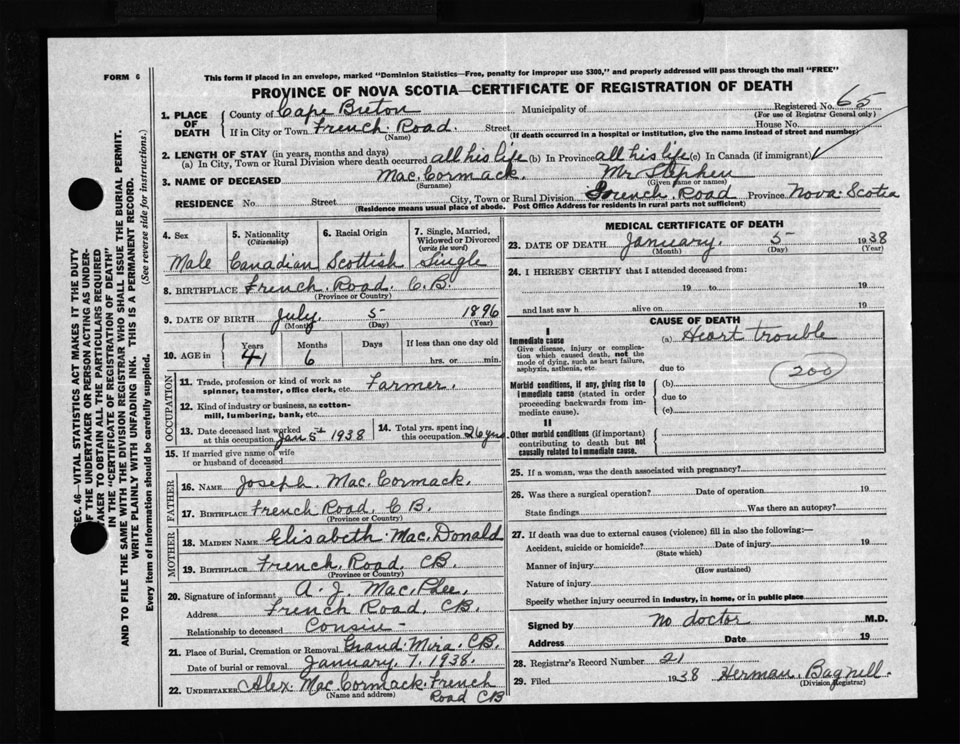 FORM 6
This form if placed in an envelope, marked "Dominion Statistics—Free, penalty for improper use $300," and properly addressed will pass through the mail "FREE"
PROVINCE OF NOVA SCOTIA—CERTIFICATE OF REGISTRATION OF DEATH
1. PLACE OF DEATH
County of Cape Breton Municipality of Registered No. 65
(For use of Registrar General only)
If in City or Town French Road. Street House No.
(Name) (If death occurred in a hospital or institution, give the name instead of street and number)
2. LENGTH OF STAY (in years, months and days)
(a) In City, Town or Rural Division where death occurred all his life (b) In Province all his life (c) In Canada (if immigrant)
3. NAME OF DECEASED Mac. Cormack. Mr Stephen
(Surname) (Given name or names)
RESIDENCE No. Street City, Town or Rural Division French. Road Province Nova. Scotia
(Residence means usual place of abode. Post Office Address for residents in rural parts not sufficient)
4. Sex Male
5. Nationality (Citizenship) Canadian
6. Racial Origin Scottish
7. Single, Married, Widowed or Divorced (write the word) Single
8. BIRTHPLACE French. Road. C.B.
(Province or Country)
9. DATE OF BIRTH July. 5 1896
(Month) (Day) (Year)
10. AGE in Years Months Days If less than one day old
41 6 hrs. or min.
OCCUPATION
11. Trade, profession or kind of work as spinner, teamster, office clerk, etc. Farmer.
12. Kind of industry or business, as cotton-mill, lumbering, bank, etc.
13. Date deceased last worked at this occupation Jan 5th 1938
14. Total yrs. spent in this occupation 26 yrs
15. If married give name of wife or husband of deceased
FATHER
16. NAME Joseph. Mac. Cormack.
17. BIRTHPLACE French Road, C.B.
(Province or Country)
MOTHER
18. MAIDEN NAME Elisabeth. Mac. Donald
19. BIRTHPLACE French. Road. CB
(Province or Country)
20. Signature of informant A. J. Mac. Phee.
Address French Road, CB.
Relationship to deceased Consin-
21. Place of Burial, Cremation or Removal Grand. Mira. CB.
Date of burial or removal January. 7. 1938.
22. UNDERTAKER Alex. Mac. Cormack. French
(Name and address) Road CB
MEDICAL CERTIFICATE OF DEATH
23. DATE OF DEATH January. 5 1938
(Month) (Day) (Year)
24. I HEREBY CERTIFY that I attended deceased from:
19 to 19
and last saw h alive on 19
CAUSE OF DEATH
I
Immediate cause (a) Heart trouble
Give disease, injury or complication which caused death, not the mode of dying, such as heart failure, asphyxia, asthenia, etc.
due to 200
Morbid conditions, if any, giving rise to immediate cause (stated in order proceeding backwards from immediate cause). (b)
due to
(c)
II
Other morbid conditions (if important) contributing to death but not causally related to immediate cause.
25. If a woman, was the death associated with pregnancy?
26. Was there a surgical operation? Date of operation 19
State findings Was there an autopsy?
27. If death was due to external causes (violence) fill in also the following:—
Accident, suicide or homicide? Date of injury 19
(State which)
Manner of injury
(How sustained)
Nature of injury
Specify whether injury occurred in industry, in home, or in public place
Signed by no doctor M.D.
Address Date 19
28. Registrar's Record Number 21
29. Filed 1938 Herman. Bagnell.
(Division Registrar)
SEC. 46—VITAL STATISTICS ACT MAKES IT THE DUTY
OF THE UNDERTAKER OR PERSON ACTING AS UNDER-
TAKER TO OBTAIN ALL THE PARTICULARS REQUIRED
IN THE "CERTIFICATE OF REGISTRATION OF DEATH"
AND TO FILE THE SAME WITH THE DIVISION REGISTRAR WHO SHALL ISSUE THE BURIAL PERMIT.
WRITE PLAINLY WITH UNFADING INK. THIS IS A PERMANENT RECORD.
Every item of information should be carefully supplied. (See reverse side for instructions.)